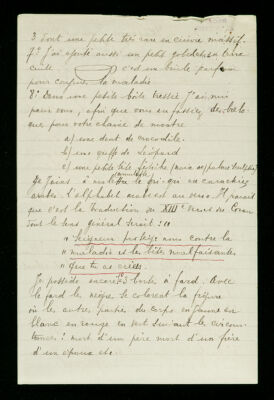 3. Tout une petite très rare en cuivre massif.
7° J'ai ajouté aussi un petit gobelet en terre
cuite c'est un brûle parfum
pour conjurer la maladie
8° Dans une petite boîte tressée j'ai mis
pour vous, afin que vous en fassiez des brelo-
que pour votre chaîne de montre
a) une dent de crocodile.
b) une griffe de léopard
c) une petite tête fétiche
Je joins à ma lettre le gri-gri en caractères
arabes. L'alphabet arabe est au verso. Il paraît
que c'est la Traduction du XIII verset du Coran
Tout le sens général serait : "
" Seigneur protège nous contre la
" maladie et les bêtes malfaisantes
" que tu as créés.
Je possède encore 3 boîte à fard. Avec
le fard le nègre se colorent la figure
ou les autres parties du corps en jaune en
blanc en rouge en vert suivant les circons-
tances : mort d'un père mort d'un frère
d'un épouse etc.